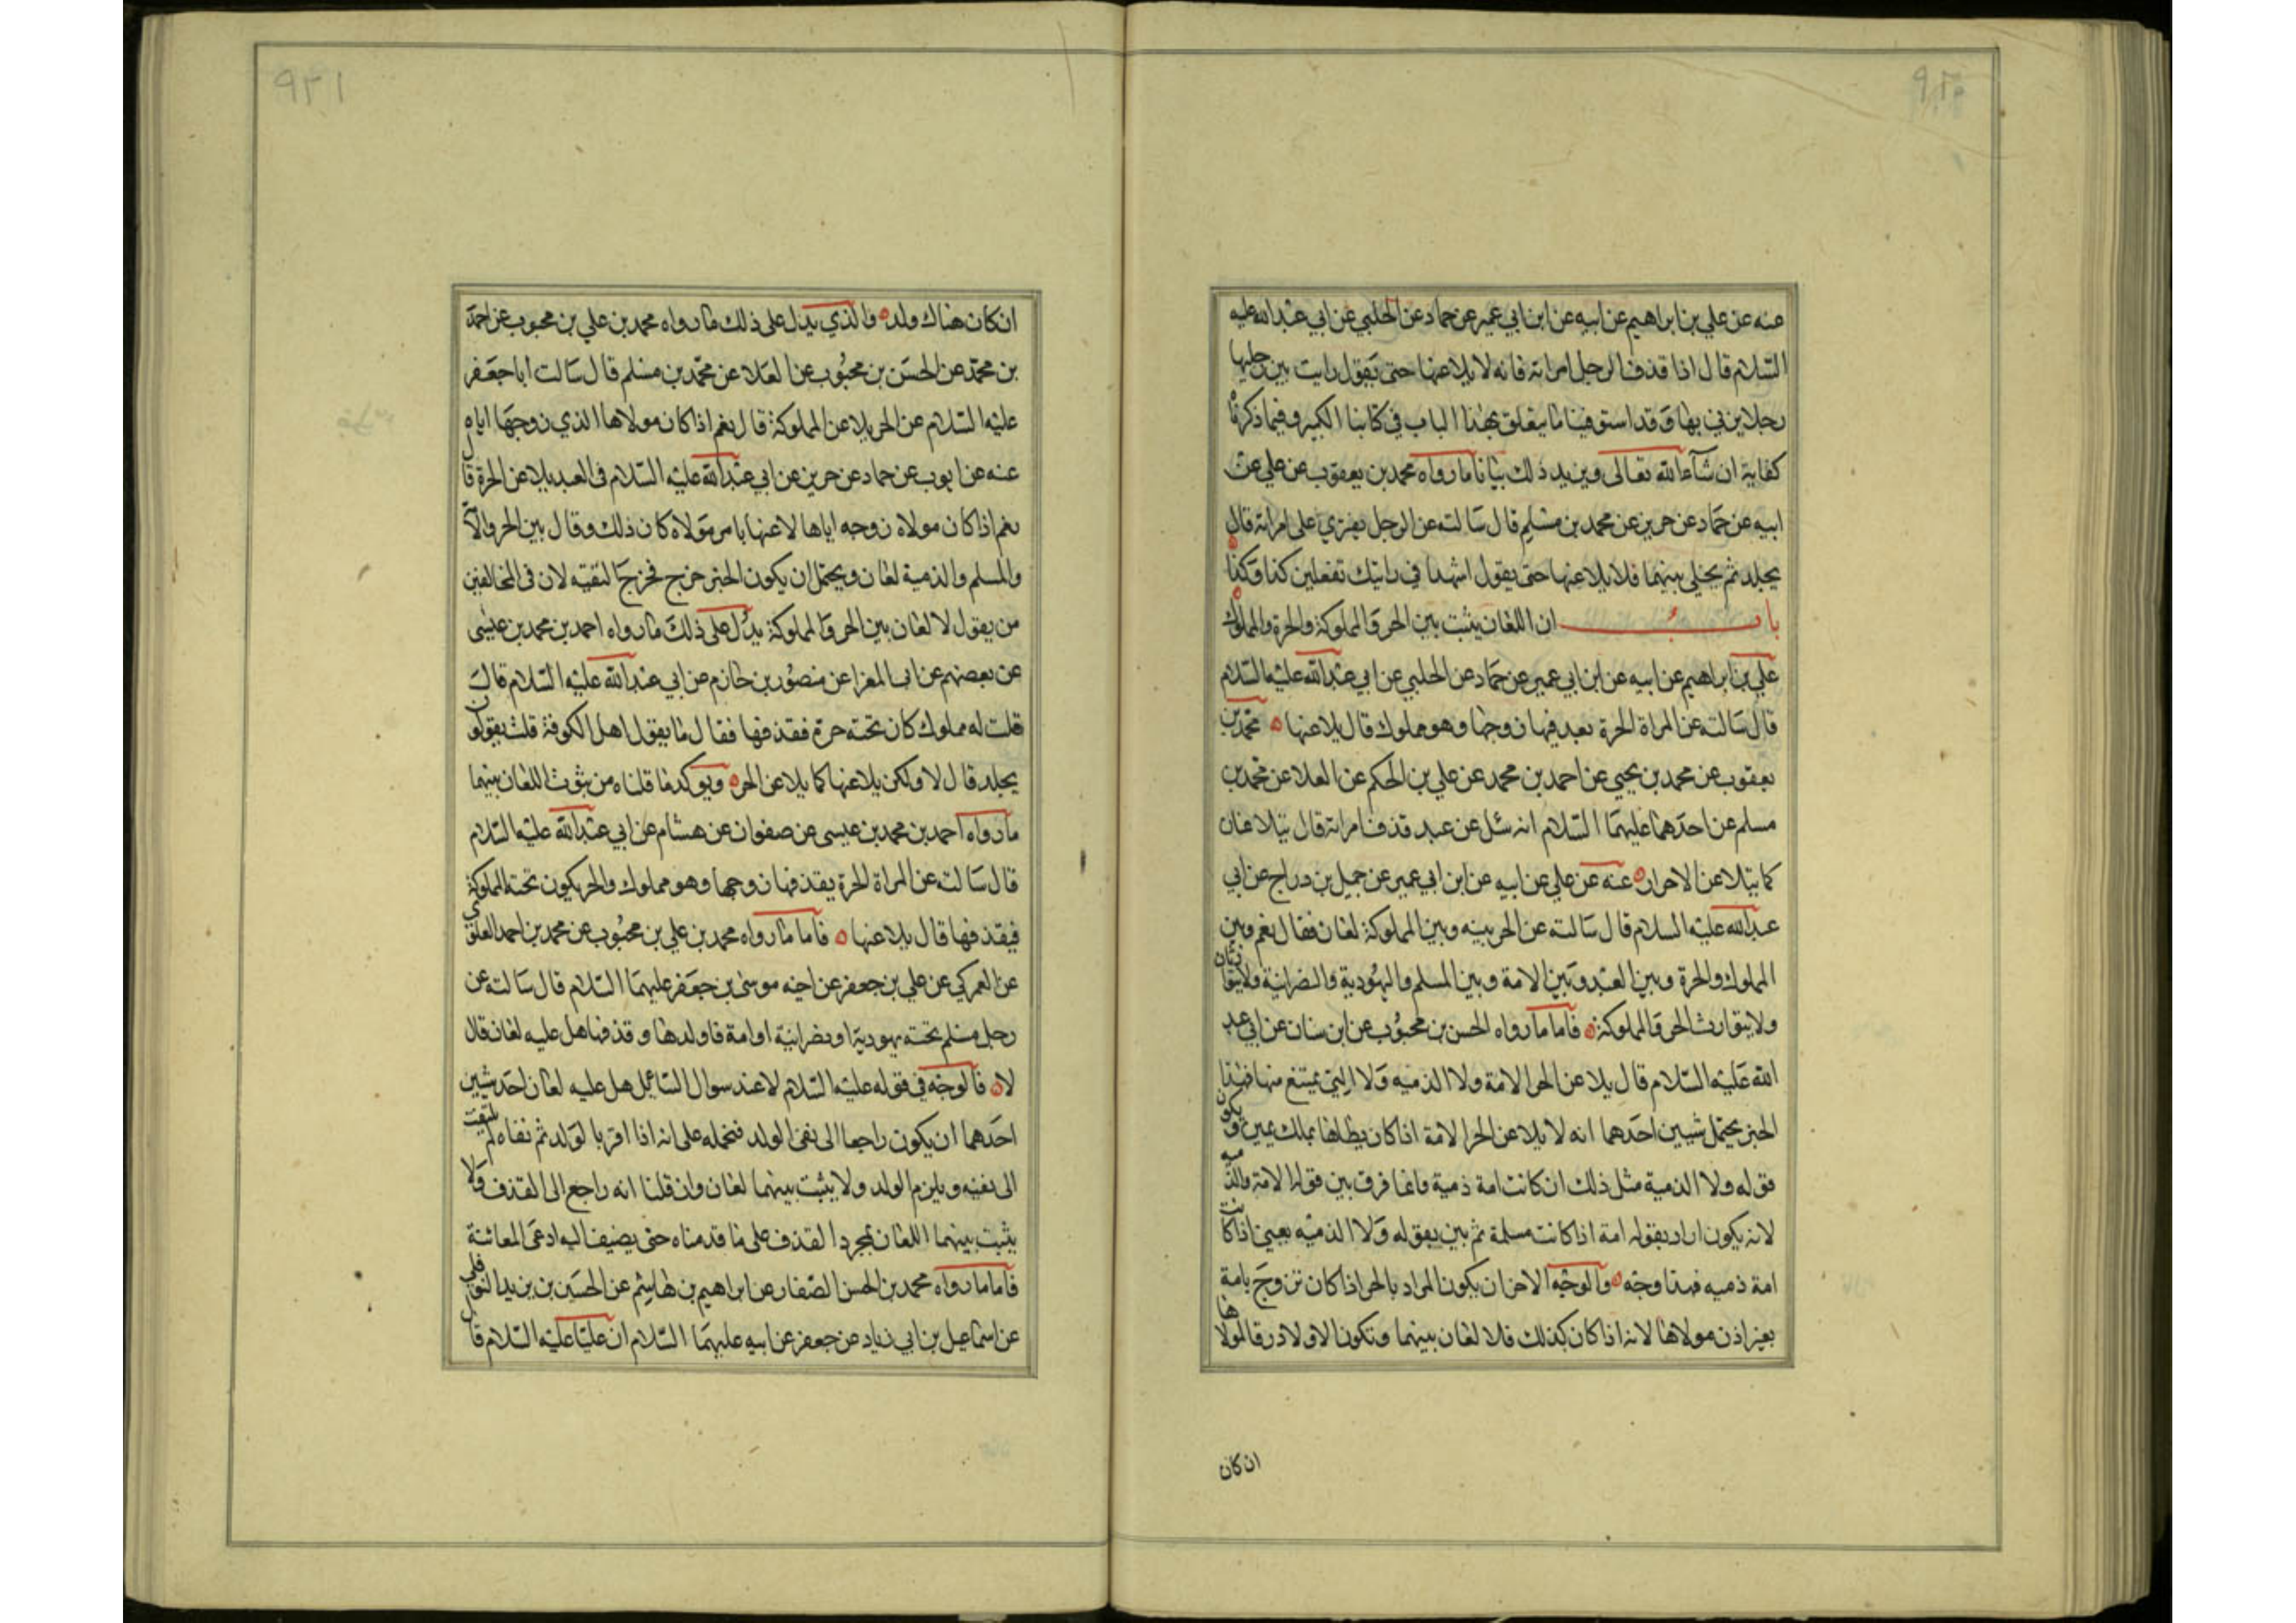 عنه عن علي بن ابراهيم عن ابيه عن ابن ابي عمير عن حماد عن الحلبي عن ابي عبد الله عليه
السلام قال اذا قذف الرجل امراته فانه لا يلاعنها حتى يقول رايت بين رجليها
رجلا يزني بها وقد استوفينا ما يتعلق بهذا الباب في كتابنا الكبير وفيما ذكرناه
كفاية ان شاء الله تعالى ويزيد ذلك بيانا ما رواه محمد بن يعقوب عن علي عن
ابيه عن حماد عن حريز عن محمد بن مسلم قال سالته عن الرجل يفتري على امراته قال
يجلد ثم يخلي بينهما فلا يلاعنها حتى يقول اشهد اني رايتك تفعلين كذا وكذا
باب ان اللعان يثبت بين الحر والمملوكة والحرة والمملوك
علي بن ابراهيم عن ابيه عن ابن ابي عمير عن حماد عن الحلبي عن ابي عبد الله عليه السلام
قال سالته عن المراة الحرة يقذفها زوجها وهو مملوك قال يلاعنها محمد بن
يعقوب عن محمد بن يحيي عن احمد بن محمد عن علي بن الحكم عن العلا عن محمد بن
مسلم عن احدهما عليهما السلام انه سئل عن عبد قذف امراته قال يتلاعنان
كما يتلاعن الاحرار عنه عن علي عن ابيه عن ابن ابي عمير عن جميل بن دراج عن ابي
عبد الله عليه السلام قال سالته عن الحر بينه وبين المملوكة لعان فقال نعم وبين
المملوك والحرة وبين العبد وبين الامة وبين المسلم واليهودية والنصرانية ولا يتوارثان
ولا يتوارث الحر والمملوكة فاما ما رواه الحسن بن محبوب عن ابن سنان عن ابي عبد
الله عليه السلام قال لا يلاعن الحر الامة ولا الذميه ولا التي يمتع منها فهذا
الخبر يحتمل شيئين احدهما انه لا يلاعن الحر الامة اذا كان يطاها بملك يمين ويكون
قوله ولا الذمية مثل ذلك ان كانت امة ذمية وانما فرق بين قوله الامة والذميه
لانه يكون اراد بقوله امة اذا كانت مسلمة ثم بين بقوله ولا الذميه يعني اذا كانت
امة ذميه فهذا وجه والوجه الاخر ان يكون المراد بالحر اذا كان تزوج بامة
بغير اذن مولاها لانه اذا كان كذلك فلا لعان بينهما وتكون الاولاد رقا لمولاها
ان كان
٩٢١
ان كان هناك ولد والذي يدل على ذلك ما رواه محمد بن علي بن محبوب عن احمد
بن محمد عن الحسن بن محبوب عن العلا عن محمد بن مسلم قال سالت ابا جعفر
عليه السلام عن الحر يلاعن المملوكة قال نعم اذا كان مولاها الذي زوجها اياه
عنه عن ايوب عن حماد عن حريز عن ابي عبد الله عليه السلام في العبد يلاعن الحرة قال
نعم اذا كان مولاه زوجه اياها لاعنها بامر مولاه كان ذلك وقال بين الحر والامة
والمسلم والذمية لعان ويحتمل ان يكون الخبر خرج مخرج التقيه لان في المخالفين
من يقول لا لعان بين الحر والمملوكة يدل على ذلك ما رواه احمد بن محمد بن عيسى
عن بعضهم عن ابي المغرا عن منصور بن حازم عن ابي عبد الله عليه السلام قال
قلت له مملوك كان تحته حرة فقذفها فقال ما يقول اهل الكوفة قلت يقولون
يجلد قال لا ولكن يلاعنها كما يلاعن الحر ويوكد ما قلناه من ثبوت اللعان بينهما
ما رواه احمد بن محمد بن عيسى عن صفوان عن هشام عن ابي عبد الله عليه السلام
قال سالته عن المراة الحرة يقذفها زوجها وهو مملوك والحر يكون تحته المملوكة
فيقذفها قال يلاعنها فاما ما رواه محمد بن علي بن محبوب عن محمد بن احمد العلوي
عن العمركي عن علي بن جعفر عن اخيه موسى بن جعفر عليهما السلام قال سالته عن
رجل مسلم تحته يهودية او نصرانية او امة فاولدها وقذفها هل عليه لعان قال
لا فالوجه في قوله عليه السلام لا عند سوال السائل هل عليه لعان احد شيئين
احدهما ان يكون راجعا الى نفي الولد فنحمله على انه اذا اقر بالولد ثم نفاه لم يلتفت
الى نفيه ويلزم الولد ولا يثبت بينهما لعان وان قلنا انه راجع الى القذف ولا
يثبت بينهما اللعان بمجرد القذف على ما قدمناه حتى يضيف اليه ادعى المعاينة
فاما ما رواه محمد بن الحسن الصفار عن ابراهيم بن هاشم عن الحسين بن يزيد النوفلي
عن اسماعيل بن ابي زياد عن جعفر عن ابيه عليهما السلام ان عليا عليه السلام قال